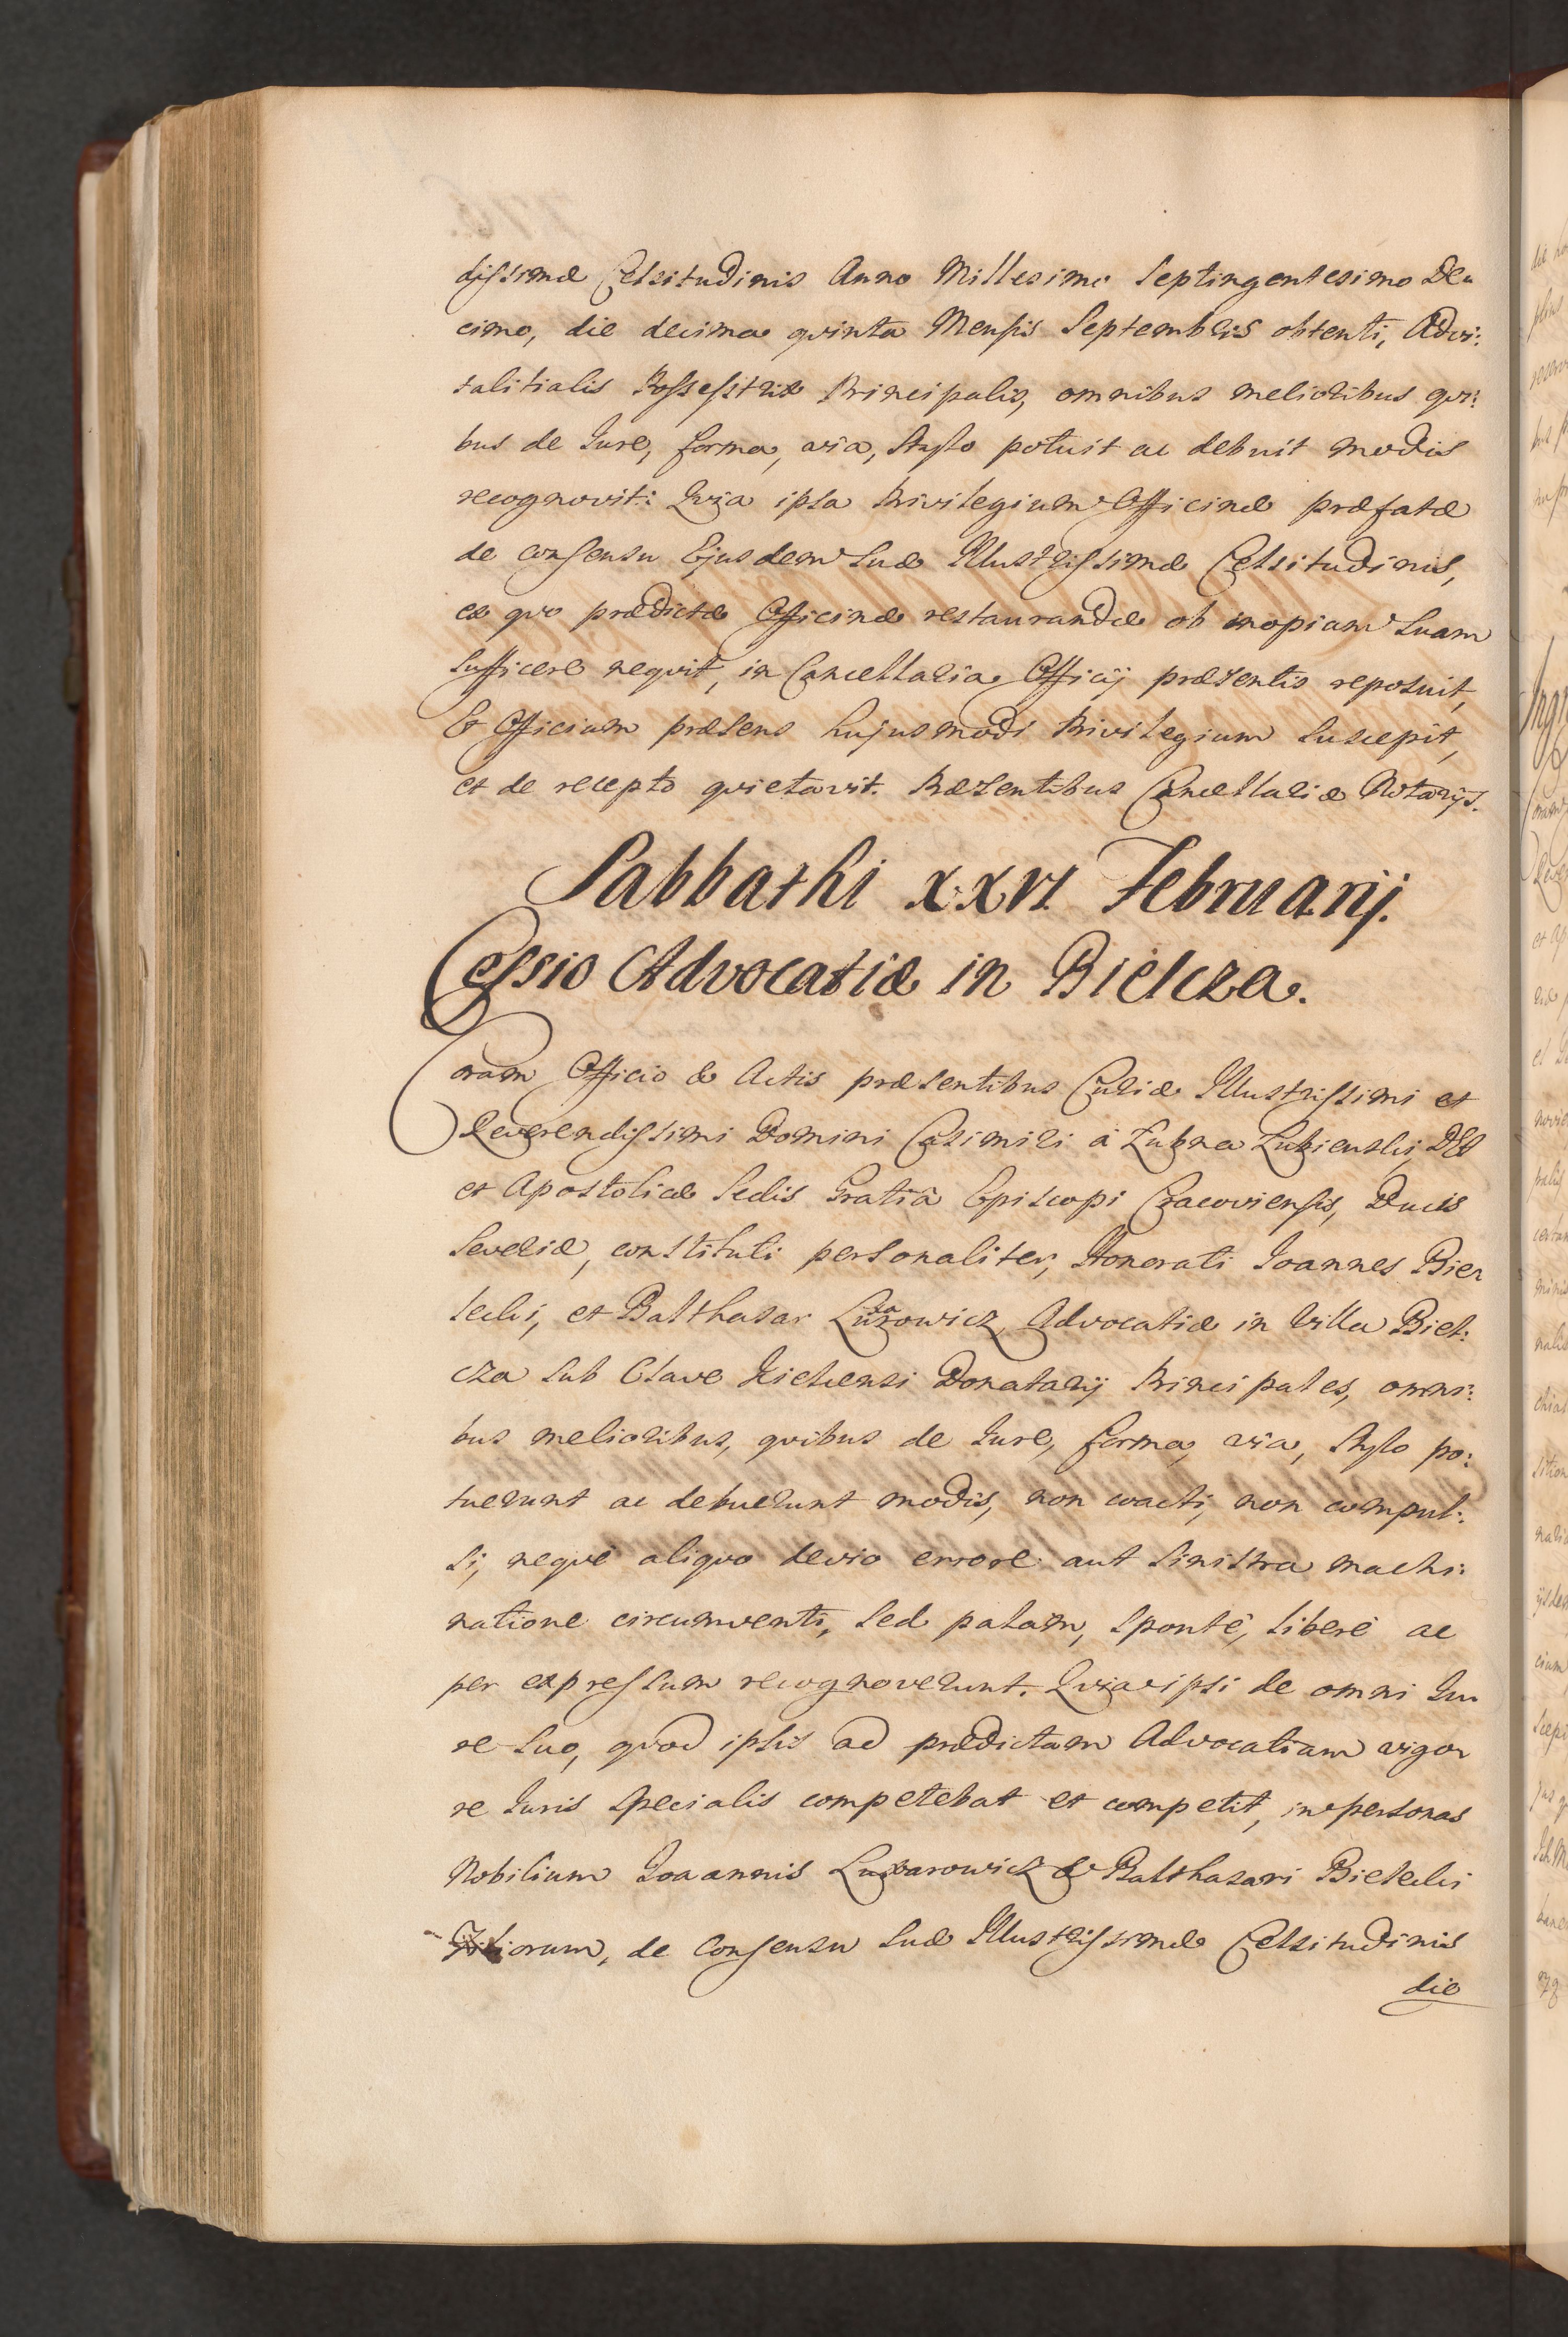 dissimæ Celsitudinis Anno Millesimo Septingentesimo De=
cimo, die decima qvinta Mensis Septembris obtenti, Advi:
talitialis Possessitrix Principalis, omnibus melioribus qvi:
bus de Iure, forma, via, stylo potuit ac debuit modis
recognovit: Qvia ipsa Privilegium Officinæ præfatæ
de consensu Ejusdem Suæ Illustrissimæ Celsitudinis,
ex qvo prædictæ Officinæ restaurandæ ob inopiam Suam
sufficere neqvit, in Cancellaria Officij præsentis reposuit,
& Officium præsens hujusmodi Privilegium suscepit,
et de recepto qvietavit. Præsentibus Cancellariæ Notarijs.
Sabbathi XXVI Februarij.
Cessio Advocatiæ in Bielcza.
Coram Officio & Actis præsentibus Curiæ Illustrissimi et
Reverendissimi Domini Casimiri à Łubna Łubienski, DEI
et Apostolicæ Sedis Gratiâ Episcopi Cracoviensis, Ducis
Severiæ, constituti personaliter, Honorati Ioannes Bie=
lecki, et Balthasar Luzarowicz, Advocatiæ in Villa Biel:
cza sub Clave Kielcensi Donatarij Principales, omni:
bus melioribus, qvibus de Iure, forma, via, stylo po:
tuerunt ac debuerunt modis, non coacti, non compul:
si, neqve aliqvo devio errore aut sinistra machi:
natione circumventi, sed palam, sponte, libere ac
per expressum recognoverunt. Qvia ipsi de omni Iu=
re suo, qvod ipsis ad prædictam Advocatiam vigo=
re Iuris specialis competebat et competit, in personas
Nobilium Ioannis Luzarowicz & Balthasari Bielecki
Filiorum, de Consensu Suæ Illustrissimæ Celsitudinis
die